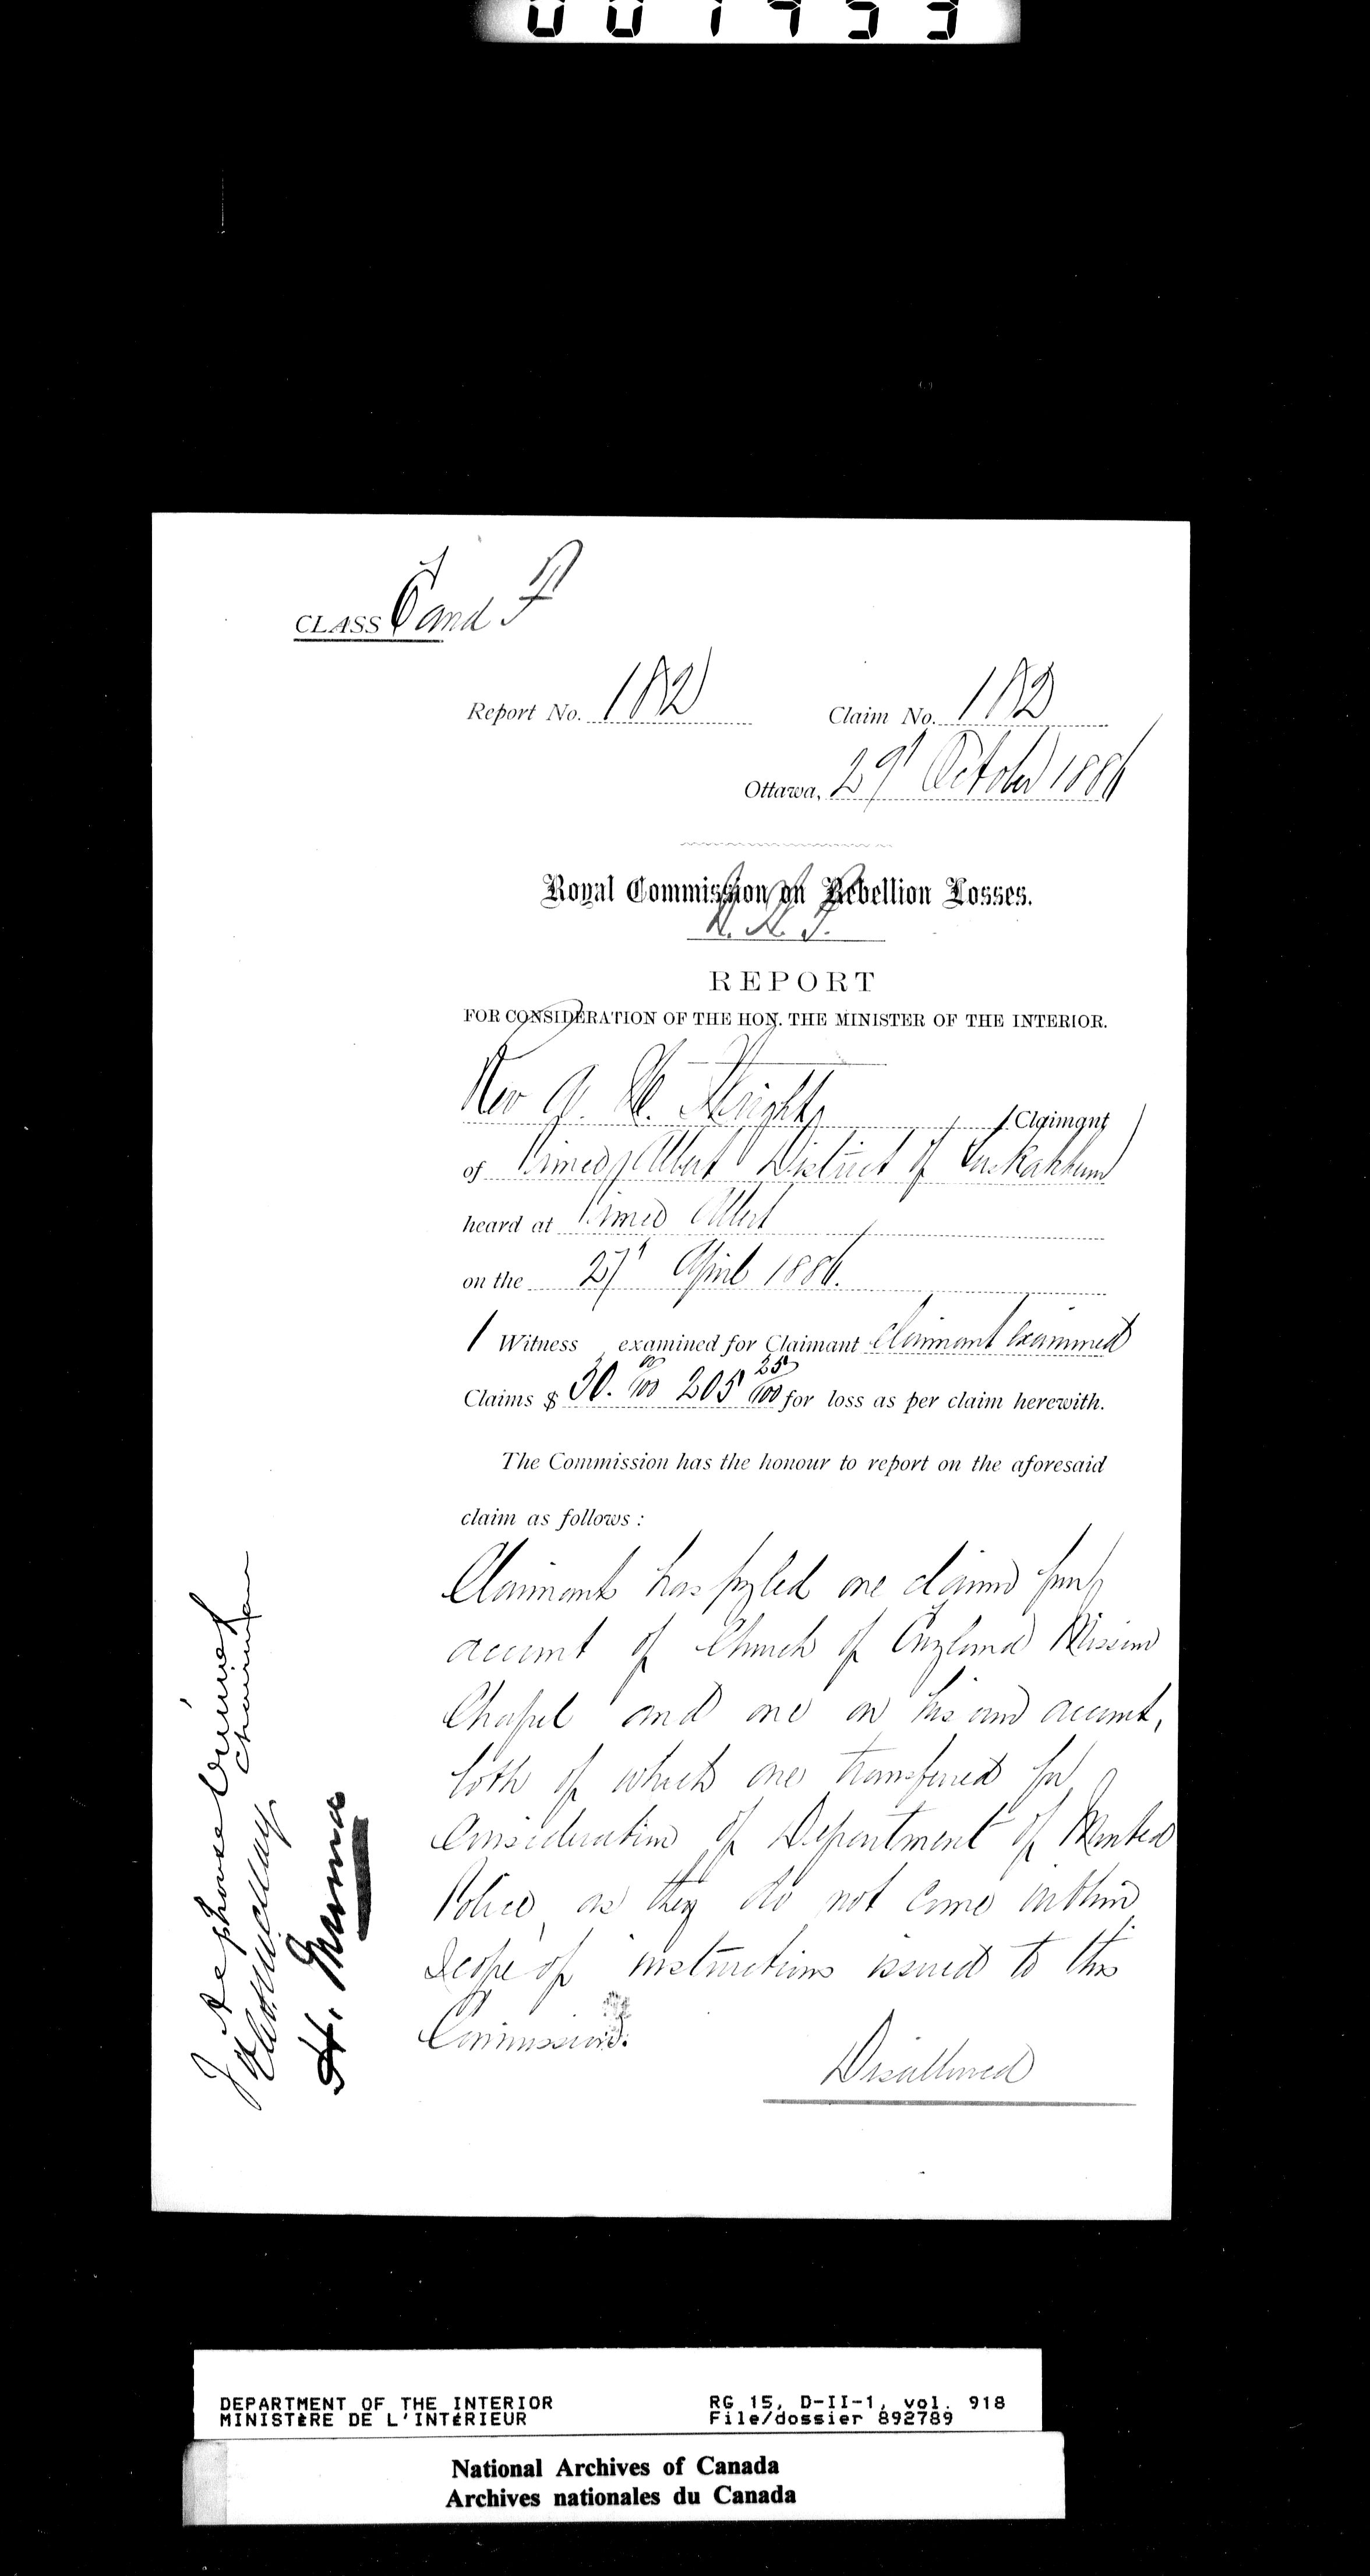 001453
CLASS C and F
Report No. 182 Claim No. 182
Ottawa, 29' October 1886
Royal Commission on Rebellion Losses.
REPORT
FOR CONSIDERATION OF THE HON. THE MINISTER OF THE INTERIOR.
Rev A. H. Wright Claimant
of Prince Albert District of Saskatchewan
heard at Prince Albert
on the 27' April 1886.
1 Witness examined for Claimant Claimant examined
Claims $ 30. 00/100 205 25/100 for loss as per claim herewith.
The Commission has the honour to report on the aforesaid
claim as follows :
Claimant has fyled one claim for
account of Church of England Mission
Chapel and one on his own account,
both of which are transferred for
Consideration of Department of Mounted
Police, as they do not come within
Scope of instructions issued to this
Commission.
Disallowed
J Alphonse Ouimet
Chairman
H. Muma
DEPARTMENT OF THE INTERIOR
MINISTÈRE DE L'INTÉRIEUR
RG 15, D-II-1, vol. 918
File/dossier 892789
National Archives of Canada
Archives nationales du Canada